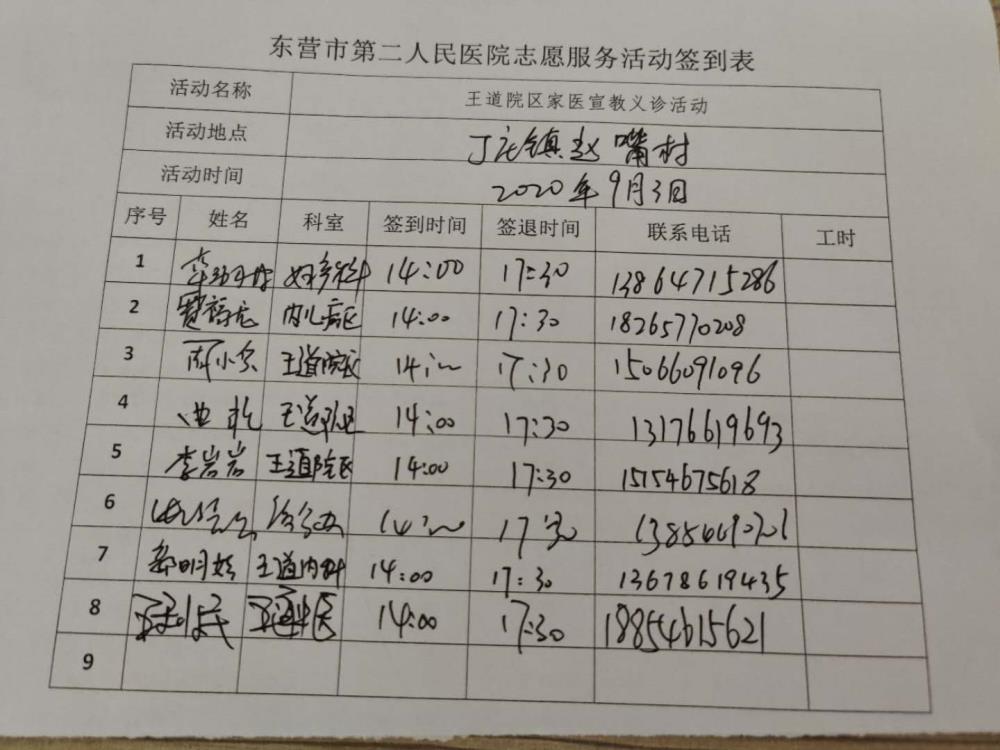 东营市第二人民医院志愿服务活动签到表
活动名称 王道院区家医宣教义诊活动
活动地点 丁庄镇赵嘴村
活动时间 2020年9月3日
序号 姓名 科室 签到时间 签退时间 联系电话 工时
1 14:00 17:30 13864715286
2 内儿病区 14:00 17:30 18265770208
3 周小会 王道院区 14:00 17:30 15066091096
4 王道院区 14:00 17:30 13176619693
5 李岩岩 王道院区 14:00 17:30 15154675618
6 14:00 17:30
7 郭明娇 王道内科 14:00 17:30 13678619435
8 14:00 17:30 18854615621
9